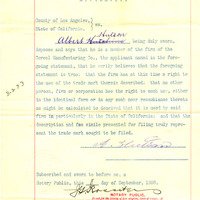 County of Los Angeles,
State of California. ss.
Albert being duly sworn,
deposes and says that he is a member of the firm of the
Manufacturing Co., the applicant named in the fore-
going statement, that he verily believes that the foregoing
statement is true; that the firm has at this time a right to
the use of the trade mark therein described; that no other
person, firm or corporation has the right to such use, either
in the identical form or in any such near resemblance thereto
as might be calculated to deceive; that it is used by said
firm in particularly in the State of California; and that the
description and fac simile presented for filing truly repre-
sent the trade mark sought to be filed.
Subscribed and sworn to before me a
Notary Public, this day of September, 1920.
NOTARY PUBLIC